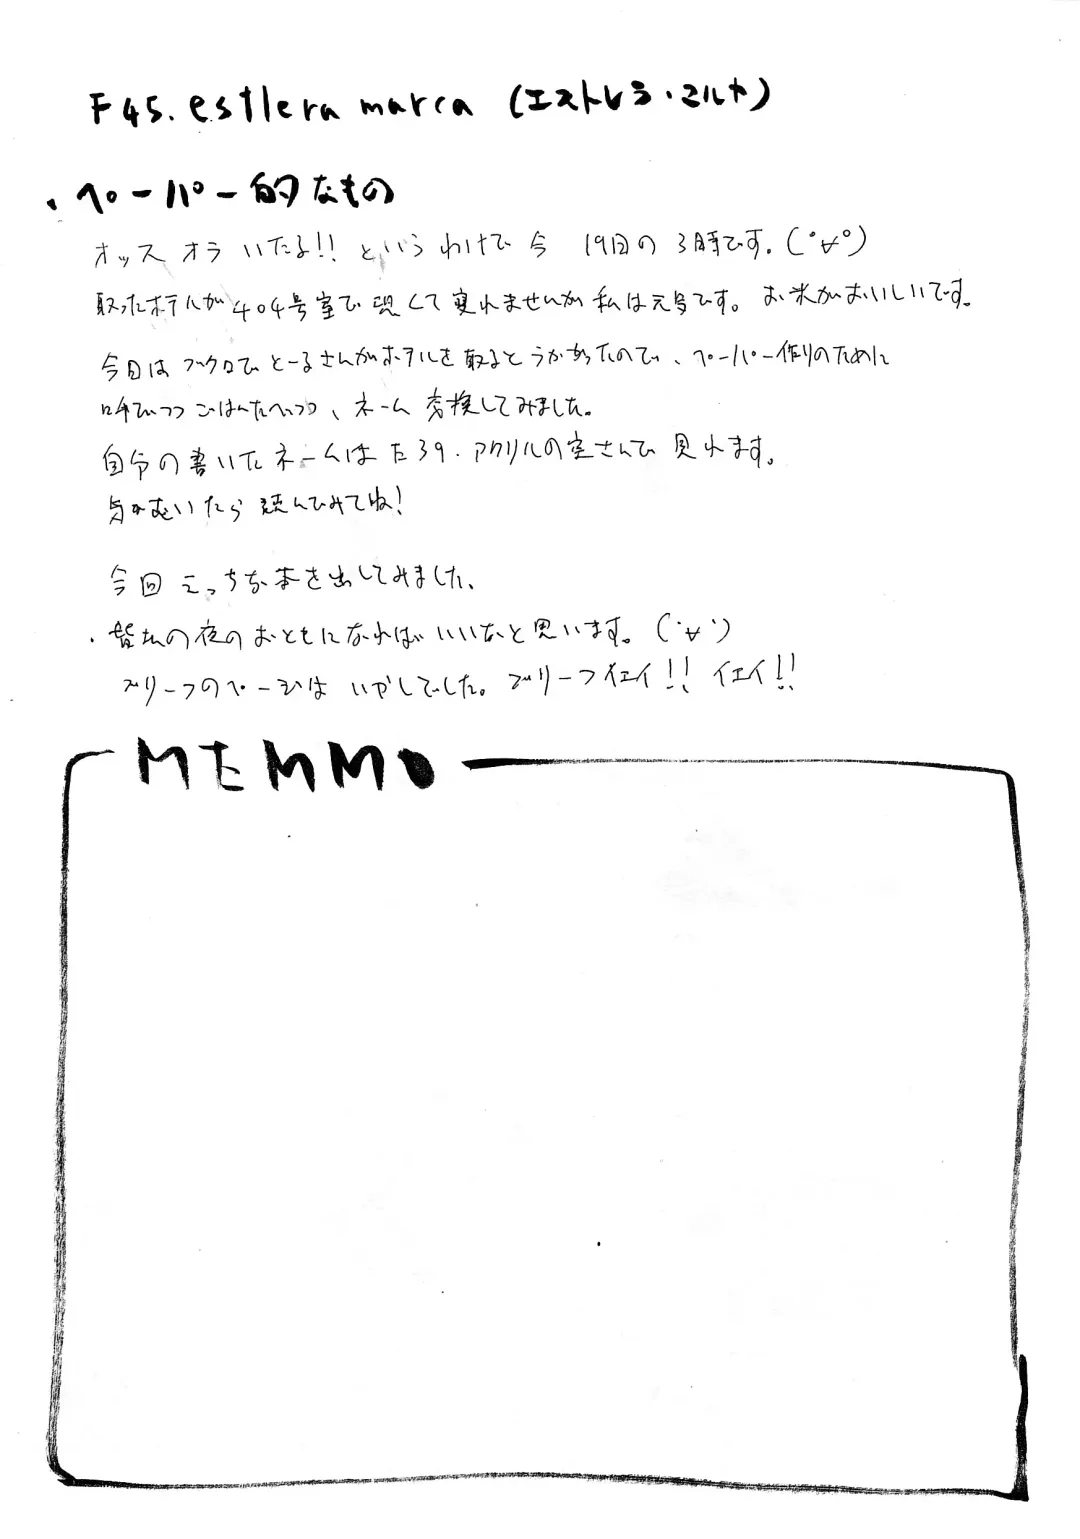 F45. estlera marca (エストレラ・マルカ)
・ペーパー的なもの
オッス オラ いたる!! というわけで 今 19日の 3時です。(°∀°)
取ったホテルが 404号室で 恐くて 寝れませんが 私は元気です。 お米がおいしいです。
今日は フクロで とーるさんがホテルを 取るとうかがったので、ペーパー作りのために
呼びつつ ごはんたべつつ、ネーム 交換してみました。
自分の書いたネームは た39. アクリルの空さんで 見れます。
気が向いたら 読んでみてね!
今回 えっちな本を出してみました、
・皆私の夜のおともになればいいなと思います。(˙∀˙)
ブリーフのページは いかしでした。ブリーフイェイ!! イェイ!!
MEMMO